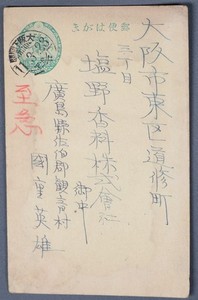 郵便はがき
大阪市東区道修町
三丁目
塩野香料株式會社
御中
至急
廣島縣佐伯郡観音村
國重英雄